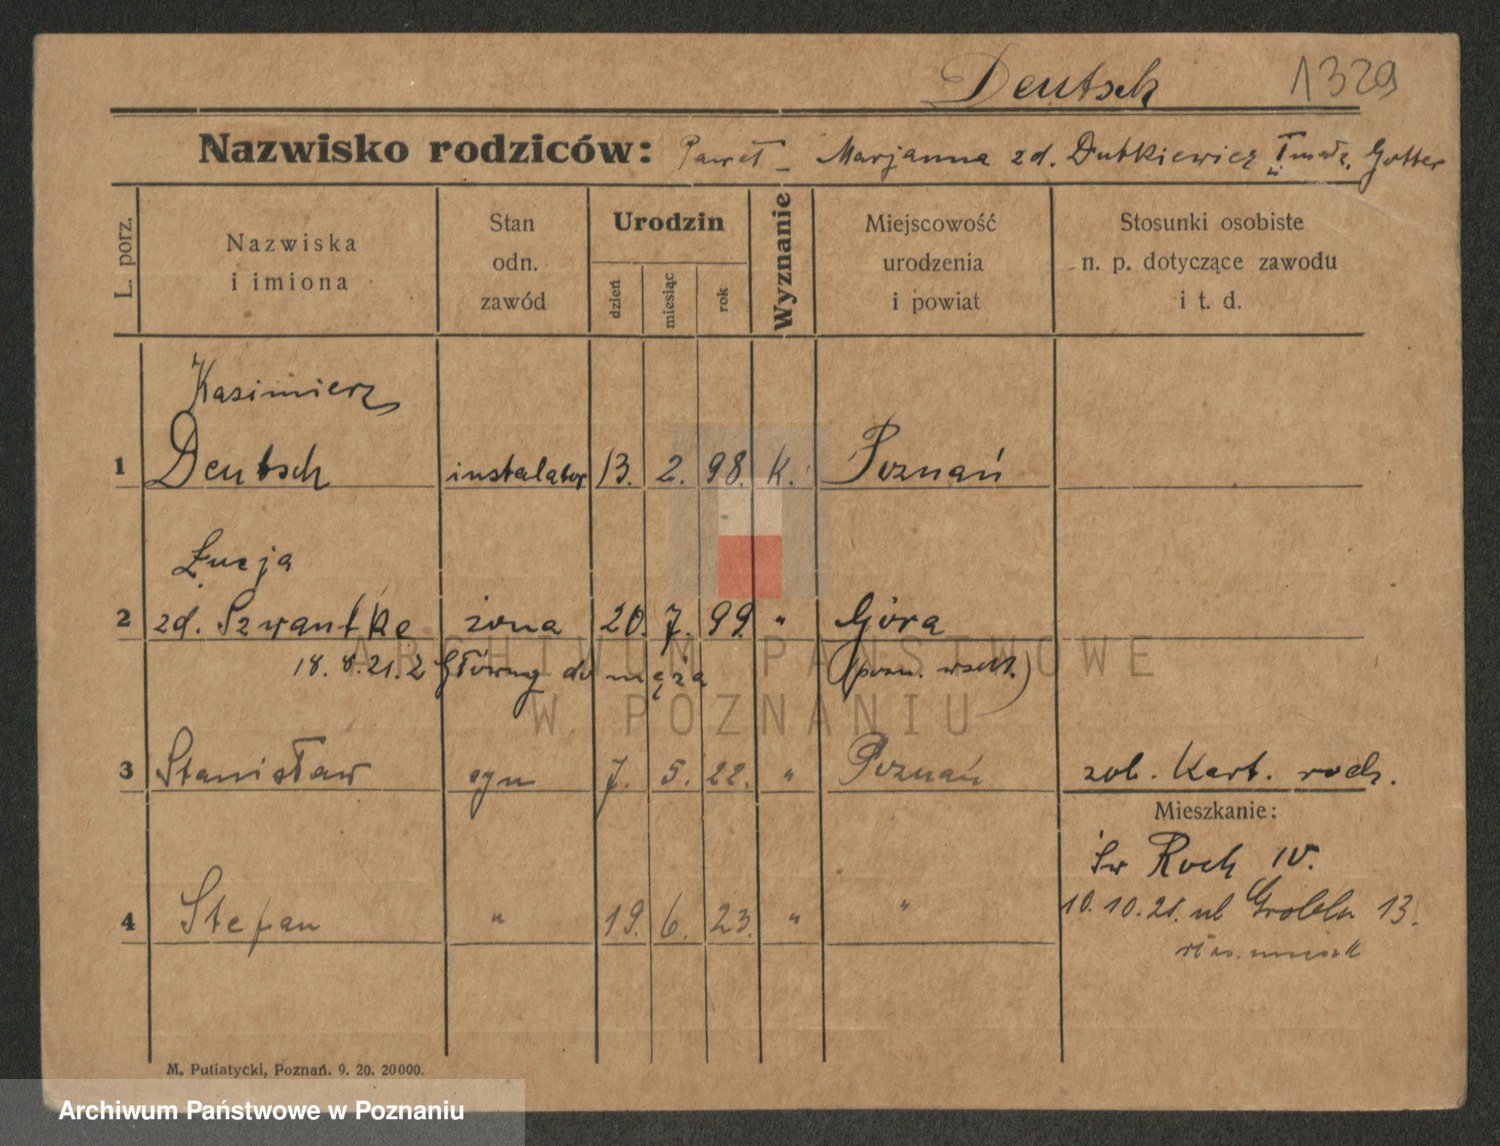 Deutsch 1329
Nazwisko rodziców: Paweł - Marjanna zd. Dutkiewicz
L. porz.
Nazwiska i imiona
Stan odn. zawód
Urodzin
dzień
miesiąc
rok
Wyznanie
Miejscowość urodzenia i powiat
Stosunki osobiste n. p. dotyczące zawodu i t. d.
Kasimierz
1 Deutsch instalator 13. 2. 98. K. Poznań
Łucja
2 zd. Szwantke żona 20. 7. 99. " Góra
18. 8. 21. z Główny do męża (pozn. wsch.)
3 Stanisław syn 7. 5. 22. " Poznań zob. Kart. rodz.
Mieszkanie:
Św Roch IV.
10. 10. 21. ul Grobla 13.
4 Stefan " 19. 6. 23. " "
M. Putiatycki, Poznań. 9. 20. 20000.
ARCHIWUM PAŃSTWOWE
W POZNANIU
Archiwum Państwowe w Poznaniu